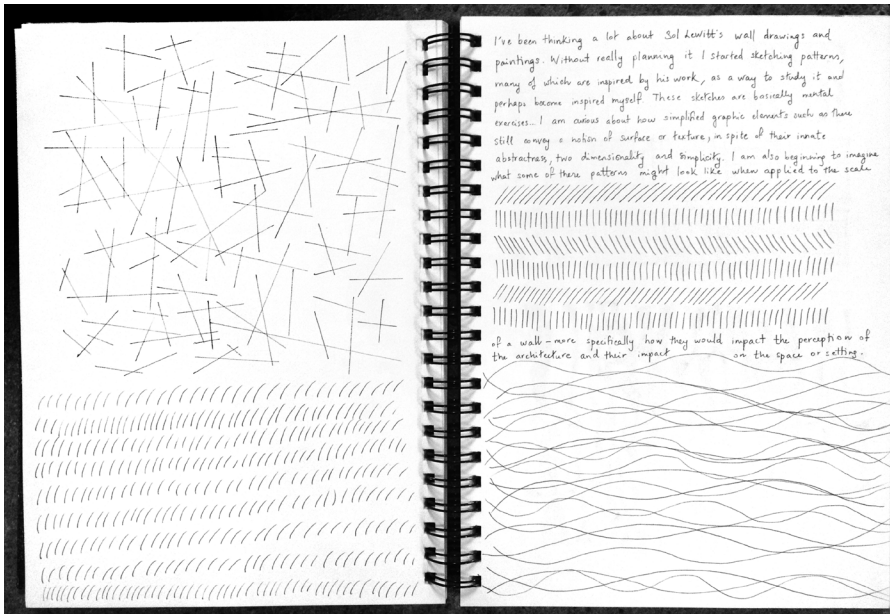 I've been thinking a lot about Sol Lewitt's wall drawings and
paintings. Without really planning it I started sketching patterns,
many of which are inspired by his work, as a way to study it and
perhaps become inspired myself. These sketches are basically mental
exercises... I am curious about how simplified graphic elements such as these
still convey a notion of surface or texture, in spite of their innate
abstractness, two dimensionality and simplicity. I am also beginning to imagine
what some of these patterns might look like when applied to the scale
of a wall – more specifically how they would impact the perception of
the architecture and their impact on the space or setting.